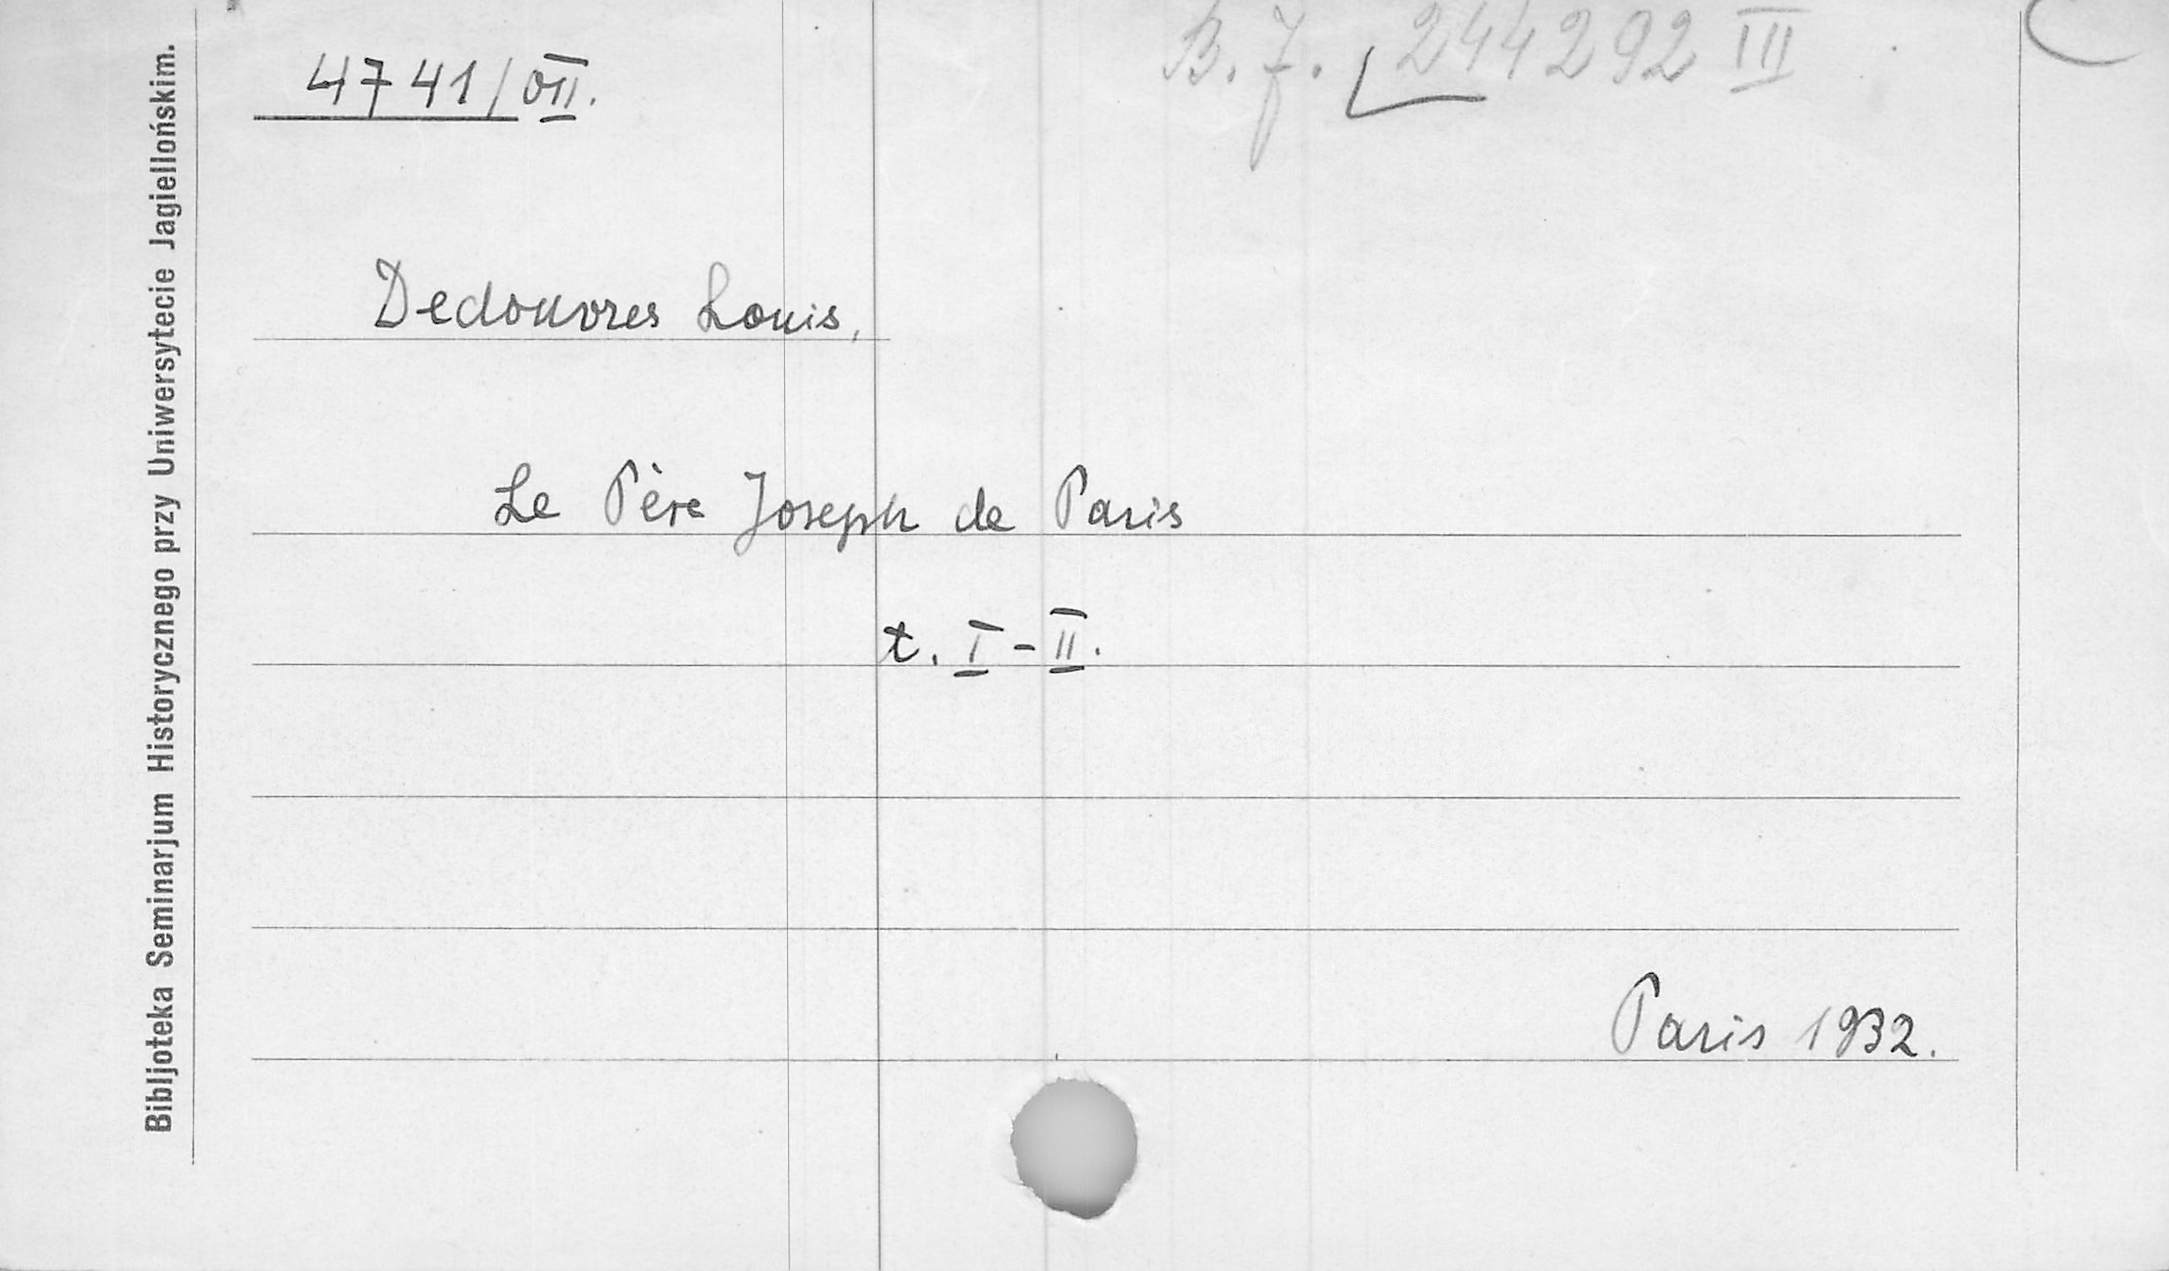 4741/VII.
B. J. 244292 III
Dedouvres Louis,
Le Père Joseph de Paris
t. I-II.
Paris 1932.
Bibljoteka Seminarjum Historycznego przy Uniwersytecie Jagiellońskim.